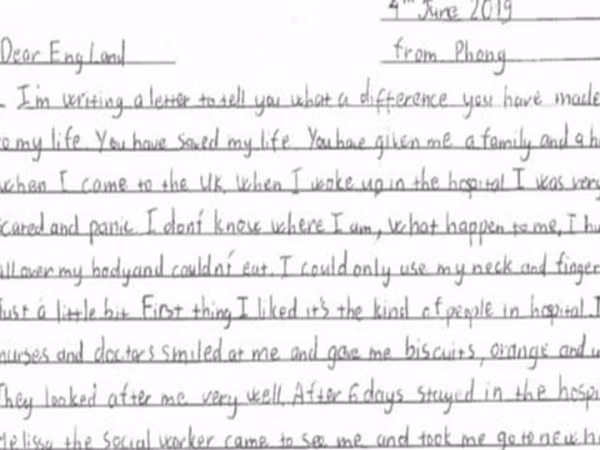 4th June 2019
Dear England
from Phong
I'm writing a letter to tell you what a difference you have made
my life. You have saved my life. You have given me a family and a
when I came to the UK. When I woke up in the hospital I was very
scared and panic. I don't know where I am, what happen to me, I
all over my body and couldn't eat. I could only use my neck and finger
Just a little bit. First thing I liked it's the kind of people in hospital.
nurses and doctors smiled at me and gave me biscuits, orange and
They looked after me very well. After 6 days stayed in the hospi
Melissa the social worker came to see me and took me go to new